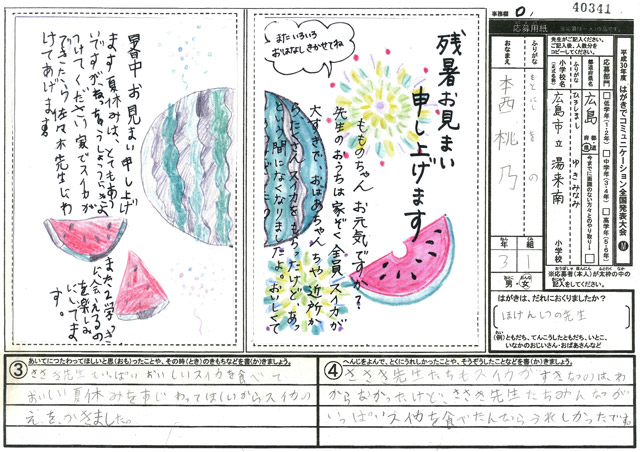 事務欄
40341
応募用紙
平成30年度 はがきでコミュニケーション全国発表大会
先生がご記入ください。
ご記入後、人数分を
コピーしてください。
応募部門
低学年(1・2年)
中学年(3・4年)
高学年(5・6年)
今までに面識のない方々とのやり取り
都道府県名
広島
ふりがな
小学校名
ひろしましし
ゆきみなみ
広島市立 湯来南
小学校
ふりがな
おなまえ
桃乃
3年
1組
男・女
※応募者(本人)が太枠の中の
記入をしてください。
はがきは、だれにおくりましたか?
ほけんしつの先生
(例)ともだち、てんこうしたともだち、いとこ、
いなかのおじいさん・おばあさんなど
残暑お見まい
申し上げます
もものちゃん お元気ですか?
先生のおうちは家ぞく全員スイカが
大すきで、おばあちゃんや近所か
らたくさんスイカをもらったけど、あっ
という間になくなりましたよ。おいしくて
またいろいろ
おはなしきかせてね
暑中お見まい申し上げ
ます。夏休みは、とてもあつ
いですが、ねっちゅうしょうに気をつ
けてください。家でスイカが
できたら佐々木先生にわ
けてあげます。
また2学き
に会えるの
を楽しみ
にしてま
す。
③ あいてにつたわってほしいと思(おも)ったことや、その時(とき)のきもちなどを書(か)きましょう。
ささき先生にいっぱいおいしいスイカを食べて
おいしい夏休みをすごしてほしいからスイカの
えをかきました。
④ へんじをよんで、とくにうれしかったことや、そうぞうしたことなどを書(か)きましょう。
ささき先生たちもスイカがすきなのは、わ
からなかったけど、ささき先生たちみんなが
いっぱいスイカを食べてたんならうれしかったです